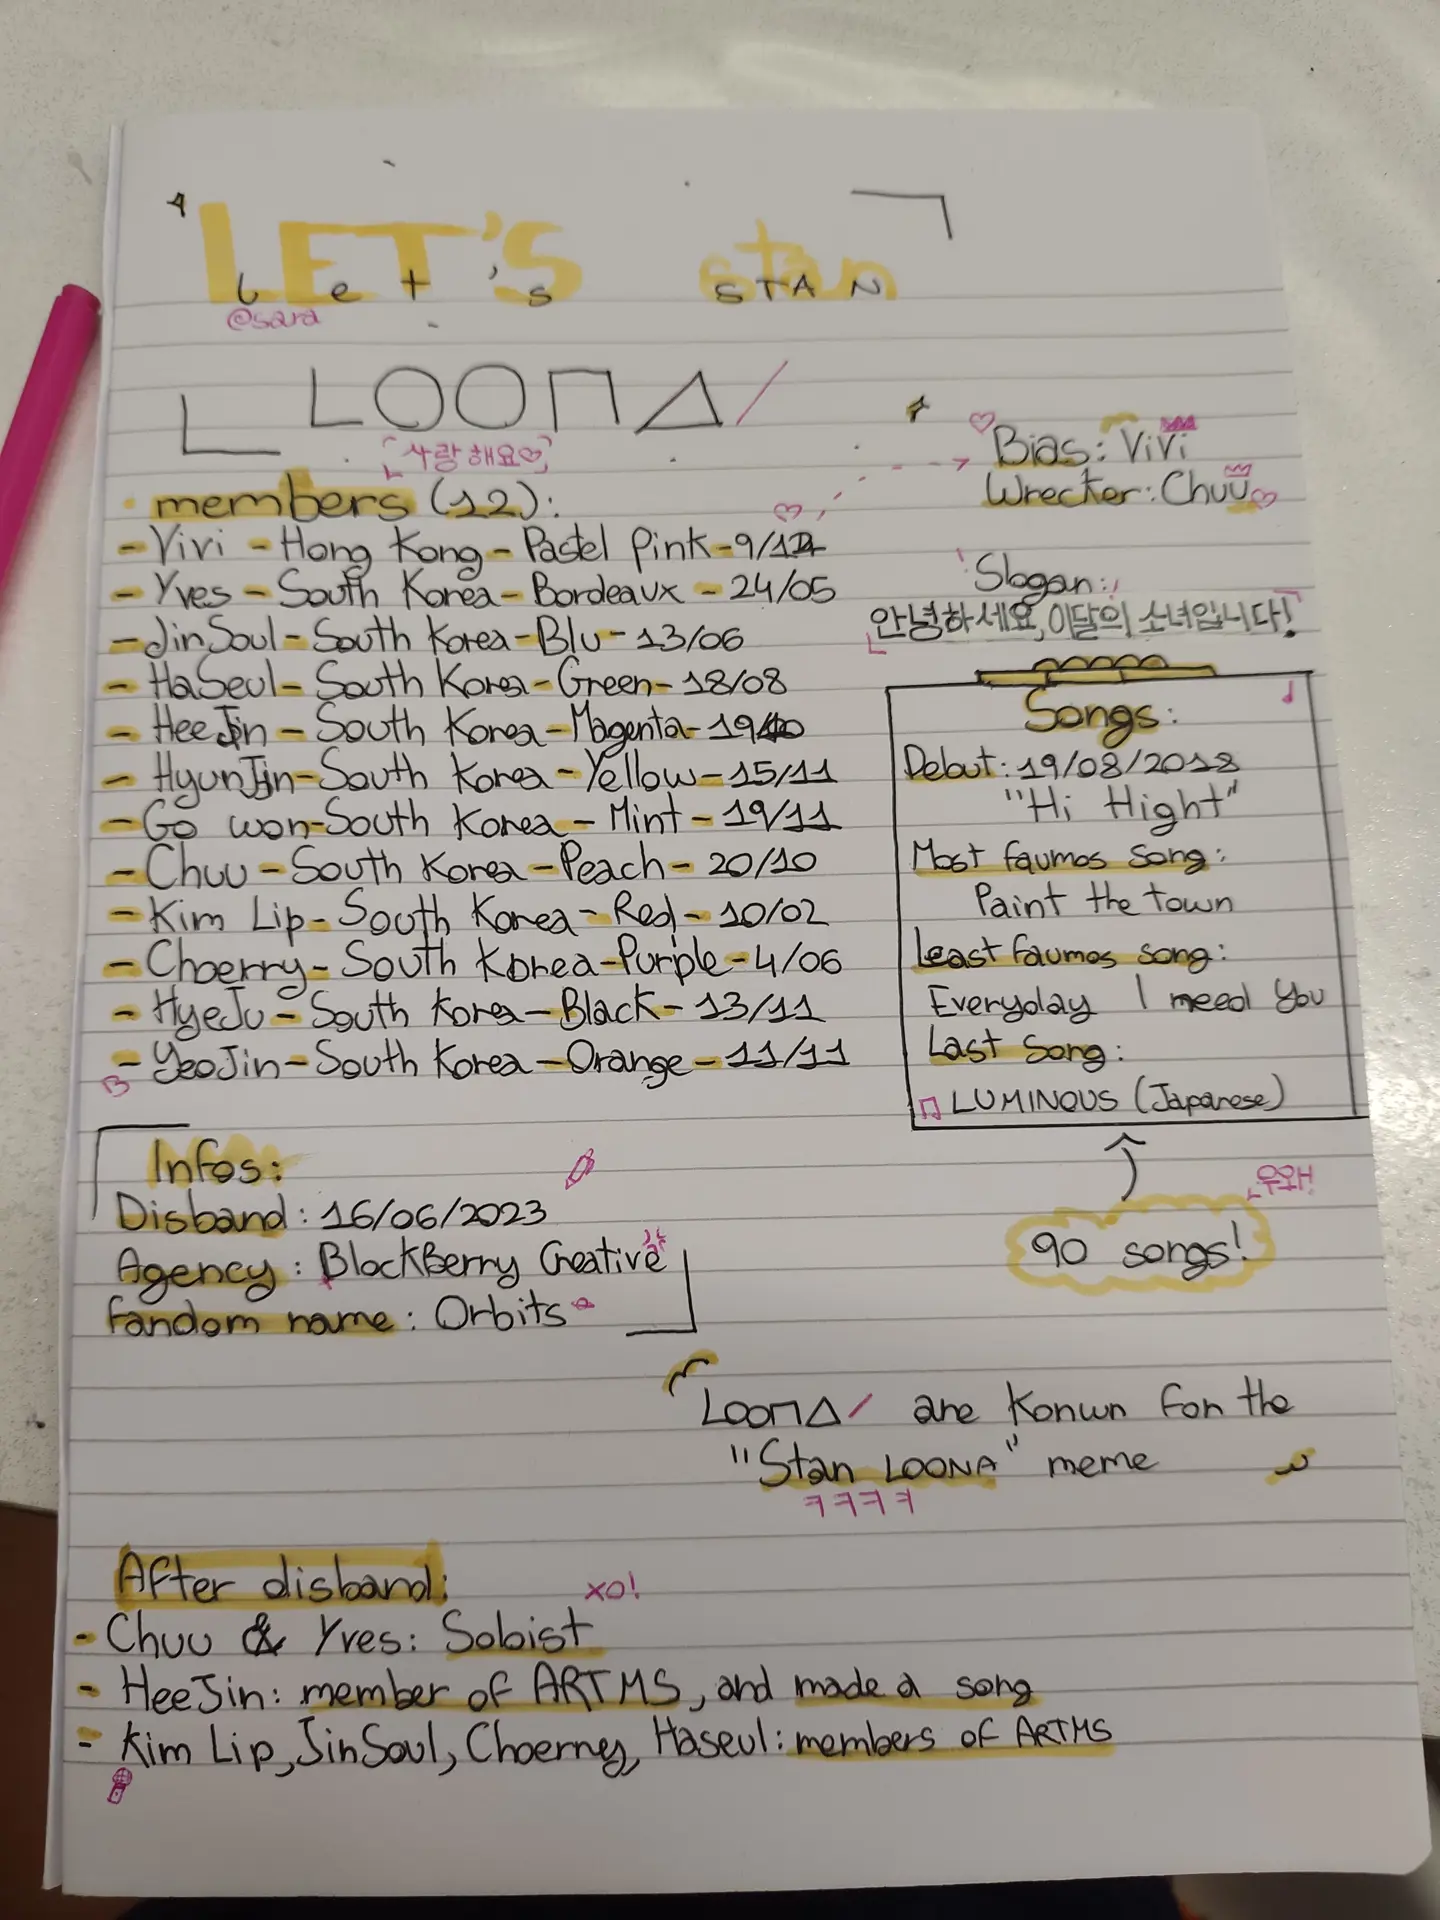 LET'S stan
let's STAN
@sara
LOOΠΔ/
사랑해요♡
Bias: ViVi
Wrecker: Chuu
members (12):
- Vivi - Hong Kong - Pastel pink - 9/12
- Yves - South Korea - Bordeaux - 24/05
- JinSoul - South Korea - Blu - 13/06
- HaSeul - South Korea - Green - 18/08
- HeeJin - South Korea - Magenta - 19/10
- HyunJin - South Korea - Yellow - 15/11
- Go won - South Korea - Mint - 19/11
- Chuu - South Korea - Peach - 20/10
- Kim Lip - South Korea - Red - 10/02
- Choerry - South Korea - Purple - 4/06
- HyeJu - South Korea - Black - 13/11
- YeoJin - South Korea - Orange - 11/11
Slogan:
안녕하세요, 이달의 소녀입니다!
Songs:
Debut: 19/08/2018
"Hi Hight"
Most faumos song:
Paint the town
Least faumos song:
Everyday I need you
Last song:
LUMINOUS (Japanese)
우와!
90 songs!
Infos:
Disband: 16/06/2023
Agency: BlockBerry Creative
fandom name: Orbits
LOOΠΔ/ are Konwn for the
"Stan LOONA" meme
ㅋㅋㅋㅋ
After disband:
xo!
- Chuu & Yves: Solist
- HeeJin: member of ARTMS, and made a song
- Kim Lip, JinSoul, Choerry, Haseul: members of ARTMS